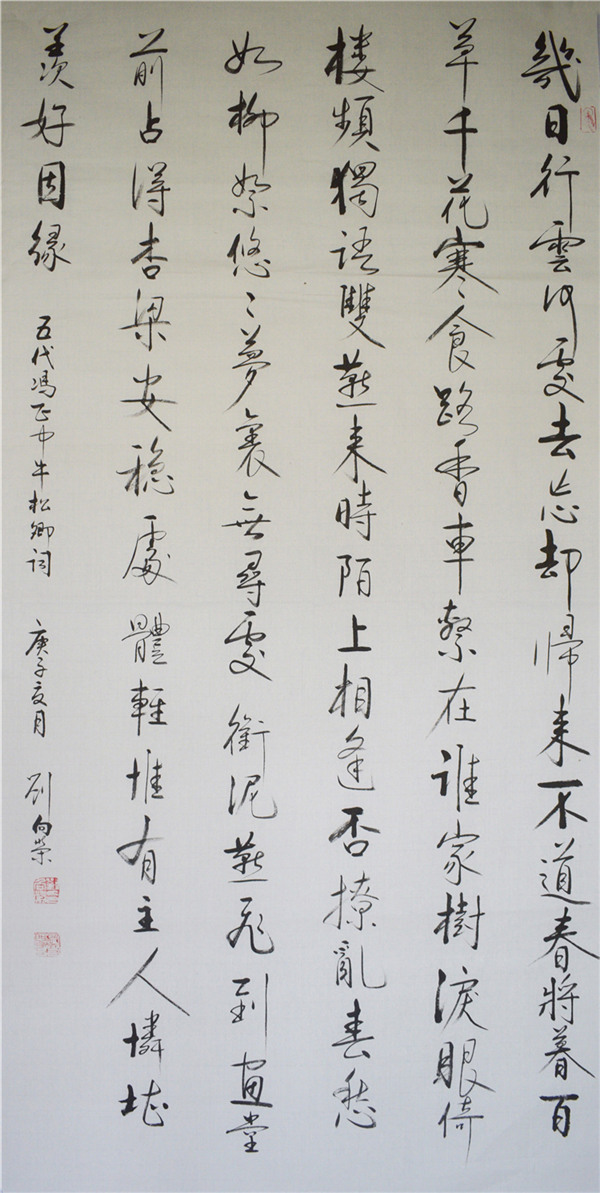 幾日行雲何處去忘却歸來不道春將暮百
草千花寒食路香車繫在誰家樹淚眼倚
樓頻獨語雙燕來時陌上相逢否撩亂春愁
如柳絮悠〻夢裏無尋處銜泥燕飛到畫堂
前占得杏梁安穩處體輕惟有主人憐堪
羨好因緣
五代馮正中牛松卿詞 庚子夏月 劉向榮